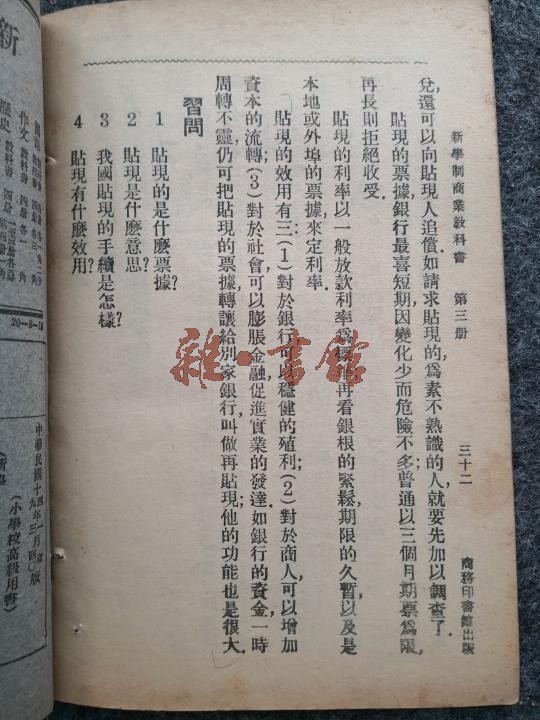 新學制商業教科書 第三册 三十二 商務印書館出版
兌,還可以向貼現人追償.如請求貼現的,爲素不熟識的人,就要先加以調查了.
貼現的票據,銀行最喜短期,因變化少而危險不多;普通以三個月期票爲限,
再長則拒絕收受.
貼現的利率以一般放款利率爲標準,再看銀根的緊鬆,期限的久暫以及是
本地或外埠的票據來定利率.
貼現的效用有三:(1)對於銀行可以穩健的殖利;(2)對於商人可以增加
資本的流轉;(3)對於社會可以膨脹金融,促進實業的發達.如銀行的資金一時
周轉不靈,仍可把貼現的票據,轉讓給別家銀行,叫做再貼現;他的功能也是很大.
習問
1 貼現的是什麼票據?
2 貼現是什麼意思?
3 我國貼現的手續是怎樣?
4 貼現有什麼效用?
雜·書館
新
作文 教科書 四册 各一角
歷史 教科書 四册
20—8—14
中華民國十四年
(小學校高級用書)